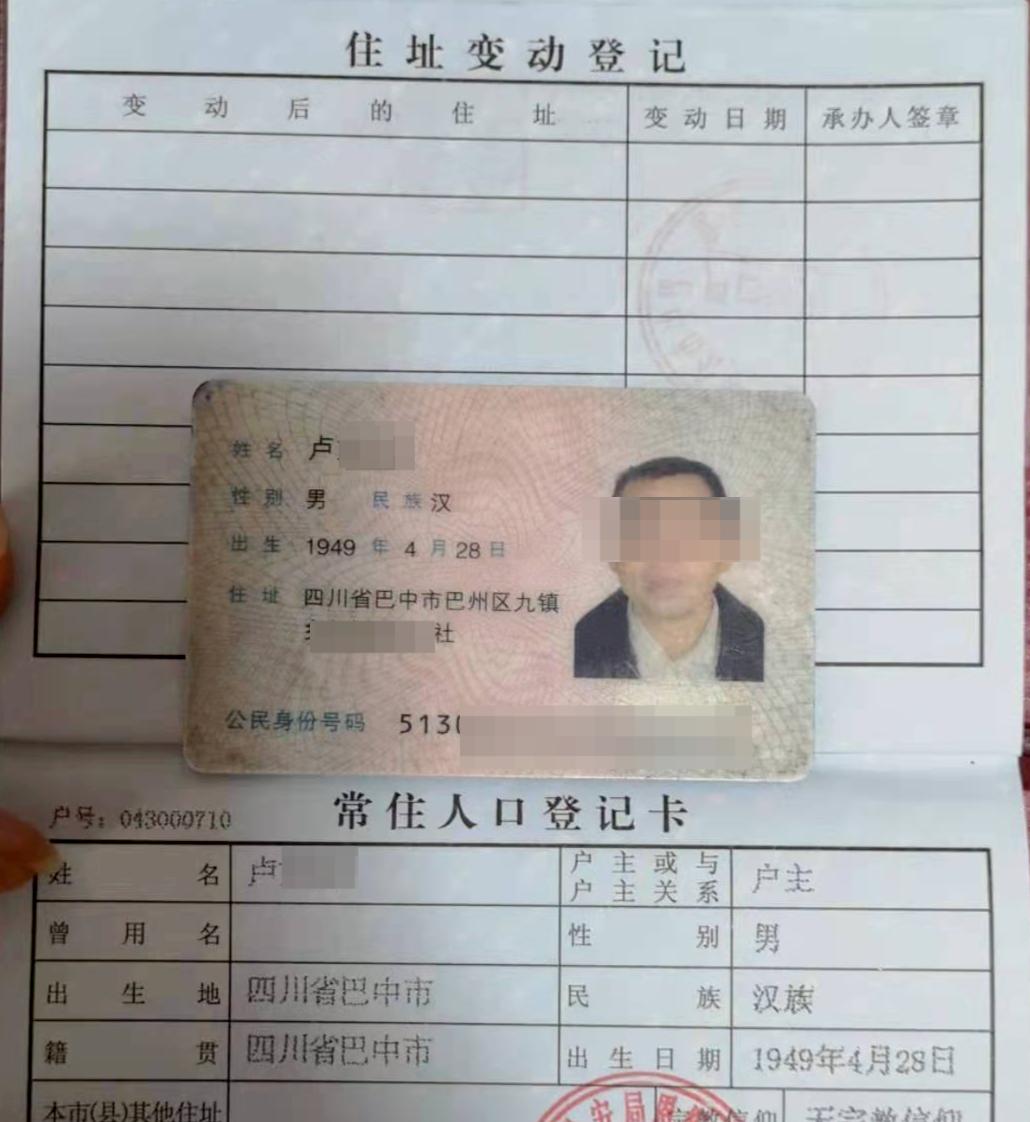 住址变动登记
变动后的住址 变动日期 承办人签章
姓名 卢
性别 男 民族 汉
出生 1949年4月28日
住址 四川省巴中市巴州区九镇
社
公民身份号码 513
户号：043000710 常住人口登记卡
姓名 卢 户主或与户主关系 户主
曾用名 性别 男
出生地 四川省巴中市 民族 汉族
籍贯 四川省巴中市 出生日期 1949年4月28日
本市(县)其他住址 宗教信仰 无宗教信仰
安局